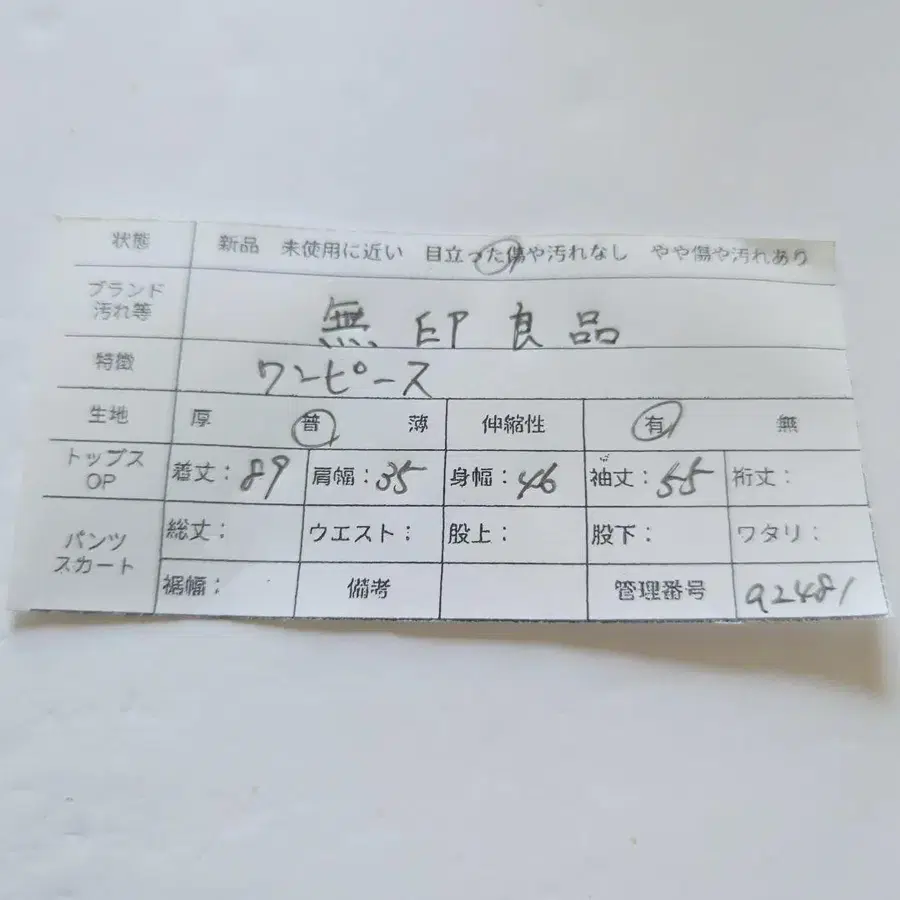 状態 新品 未使用に近い 目立った傷や汚れなし やや傷や汚れあり
ブランド
汚れ等
無印良品
特徴 ワンピース
生地 厚 普 薄 伸縮性 有 無
トップス
OP
着丈:89 肩幅:35 身幅:46 袖丈:55 裄丈:
パンツ
スカート
総丈: ウエスト: 股上: 股下: ワタリ:
裾幅: 備考 管理番号 a2481